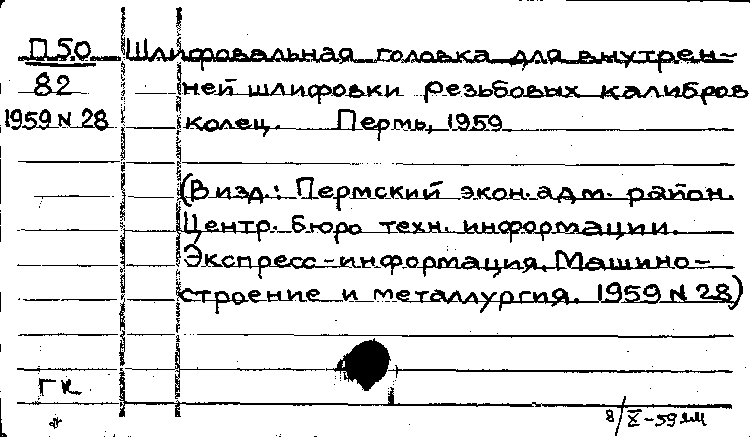 П50 Шлифовальная головка для внутрен-
82 ней шлифовки резьбовых калибров
1959 N 28 колец. Пермь, 1959
(В изд.: Пермский экон. адм. район.
Центр. бюро техн. информации.
Экспресс-информация. Машино-
строение и металлургия. 1959 N 28)
ГК
8/X-59